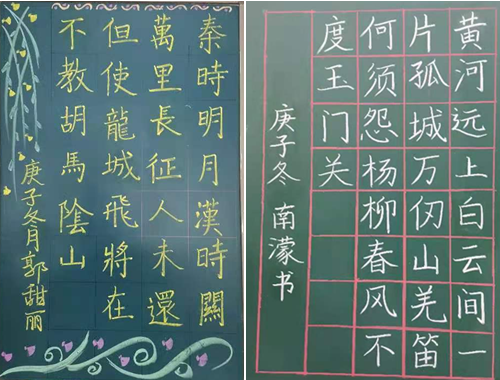 秦時明月漢時關
萬里長征人未還
但使龍城飛將在
不教胡馬陰山
庚子冬月郭甜丽
黄河远上白云间一
片孤城万仞山羌笛
何须怨杨柳春风不
度玉门关
庚子冬 南濛书